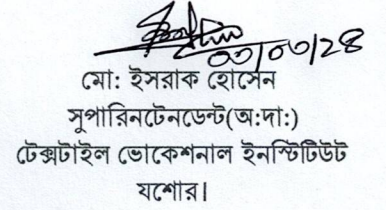 ০৩/০৩/২৪
মো: ইসরাক হোসেন
সুপারিনটেনডেন্ট(অ:দা:)
টেক্সটাইল ভোকেশনাল ইনস্টিটিউট
যশোর।